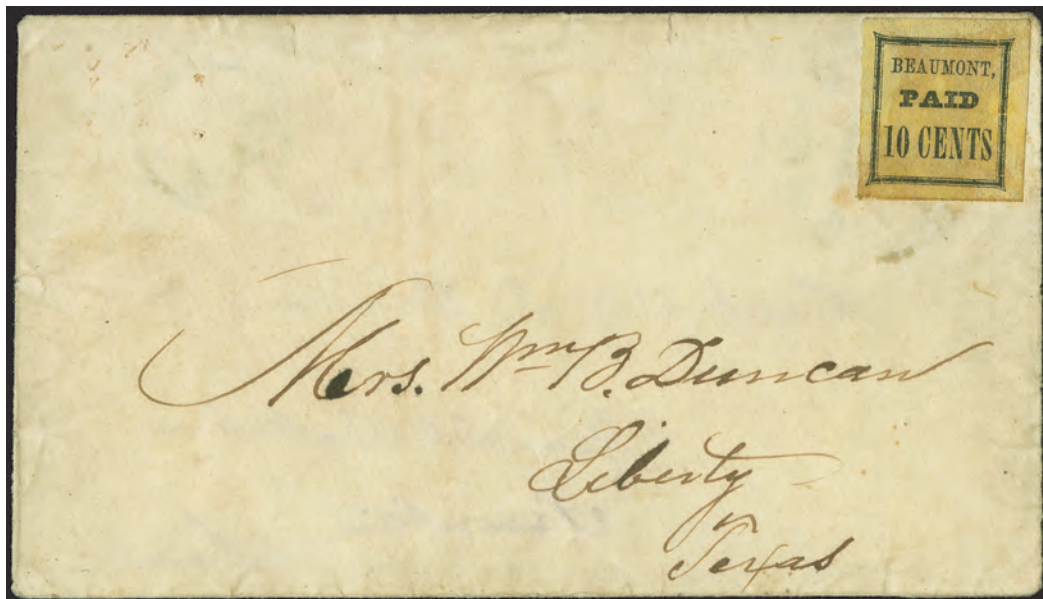 BEAUMONT,
PAID
10 CENTS
Mrs. Wm B. Duncan
Liberty
Texas